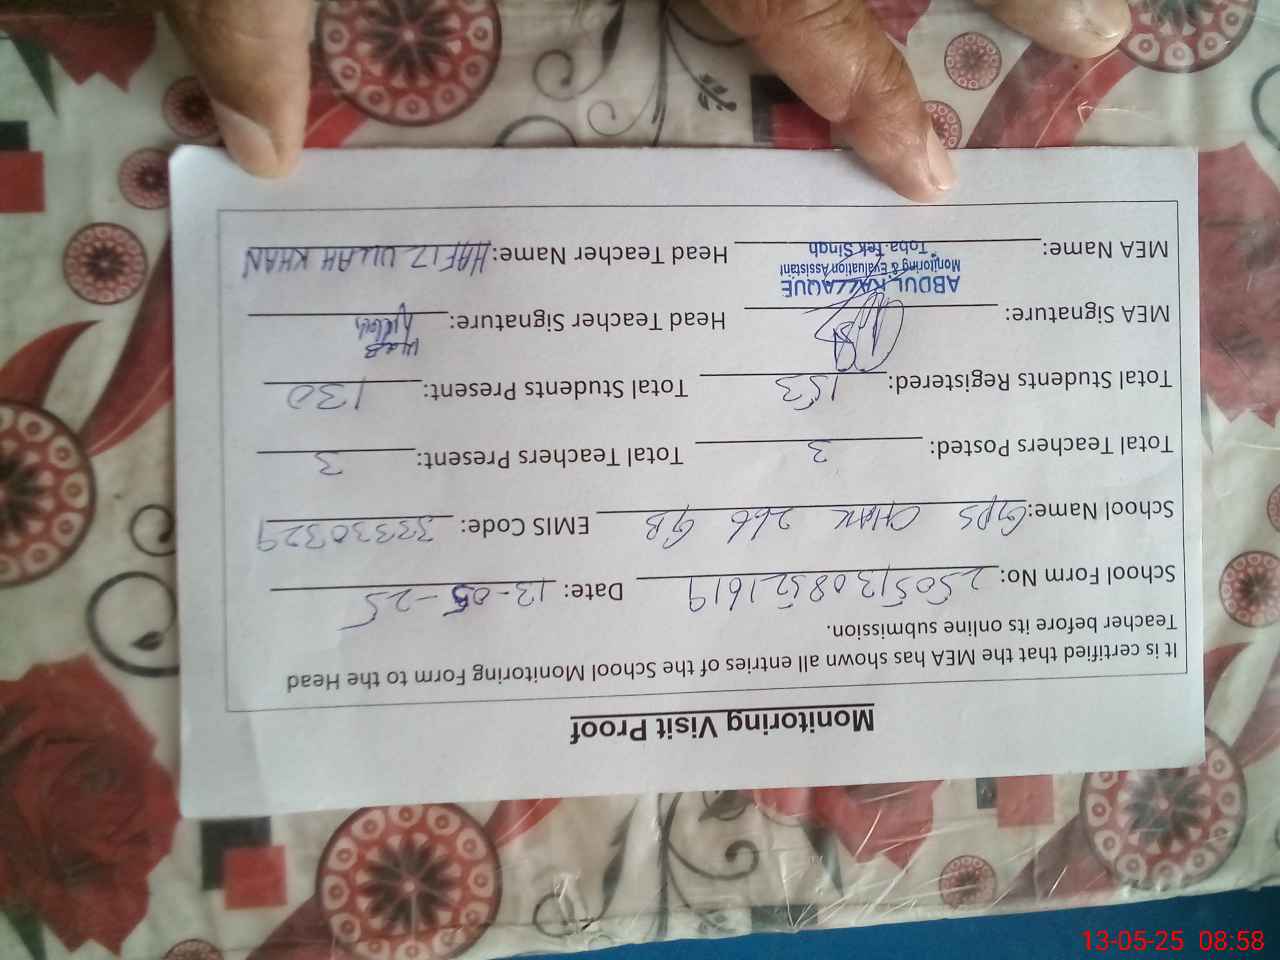 Monitoring Visit Proof
It is certified that the MEA has shown all entries of the School Monitoring Form to the Head
Teacher before its online submission.
School Form No: 2505130852161619 Date: 13-05-25
School Name: GPS CHAK 266 GB EMIS Code: 33330329
Total Teachers Posted: 3 Total Teachers Present: 3
Total Students Registered: 153 Total Students Present: 130
MEA Signature: Head Teacher Signature:
ABDUL KALLAQUE
Monitoring & Evaluation Assistant
Toba Tek Singh
MEA Name: Head Teacher Name: HAFIZ ULLAH KHAN
13-05-25 08:58